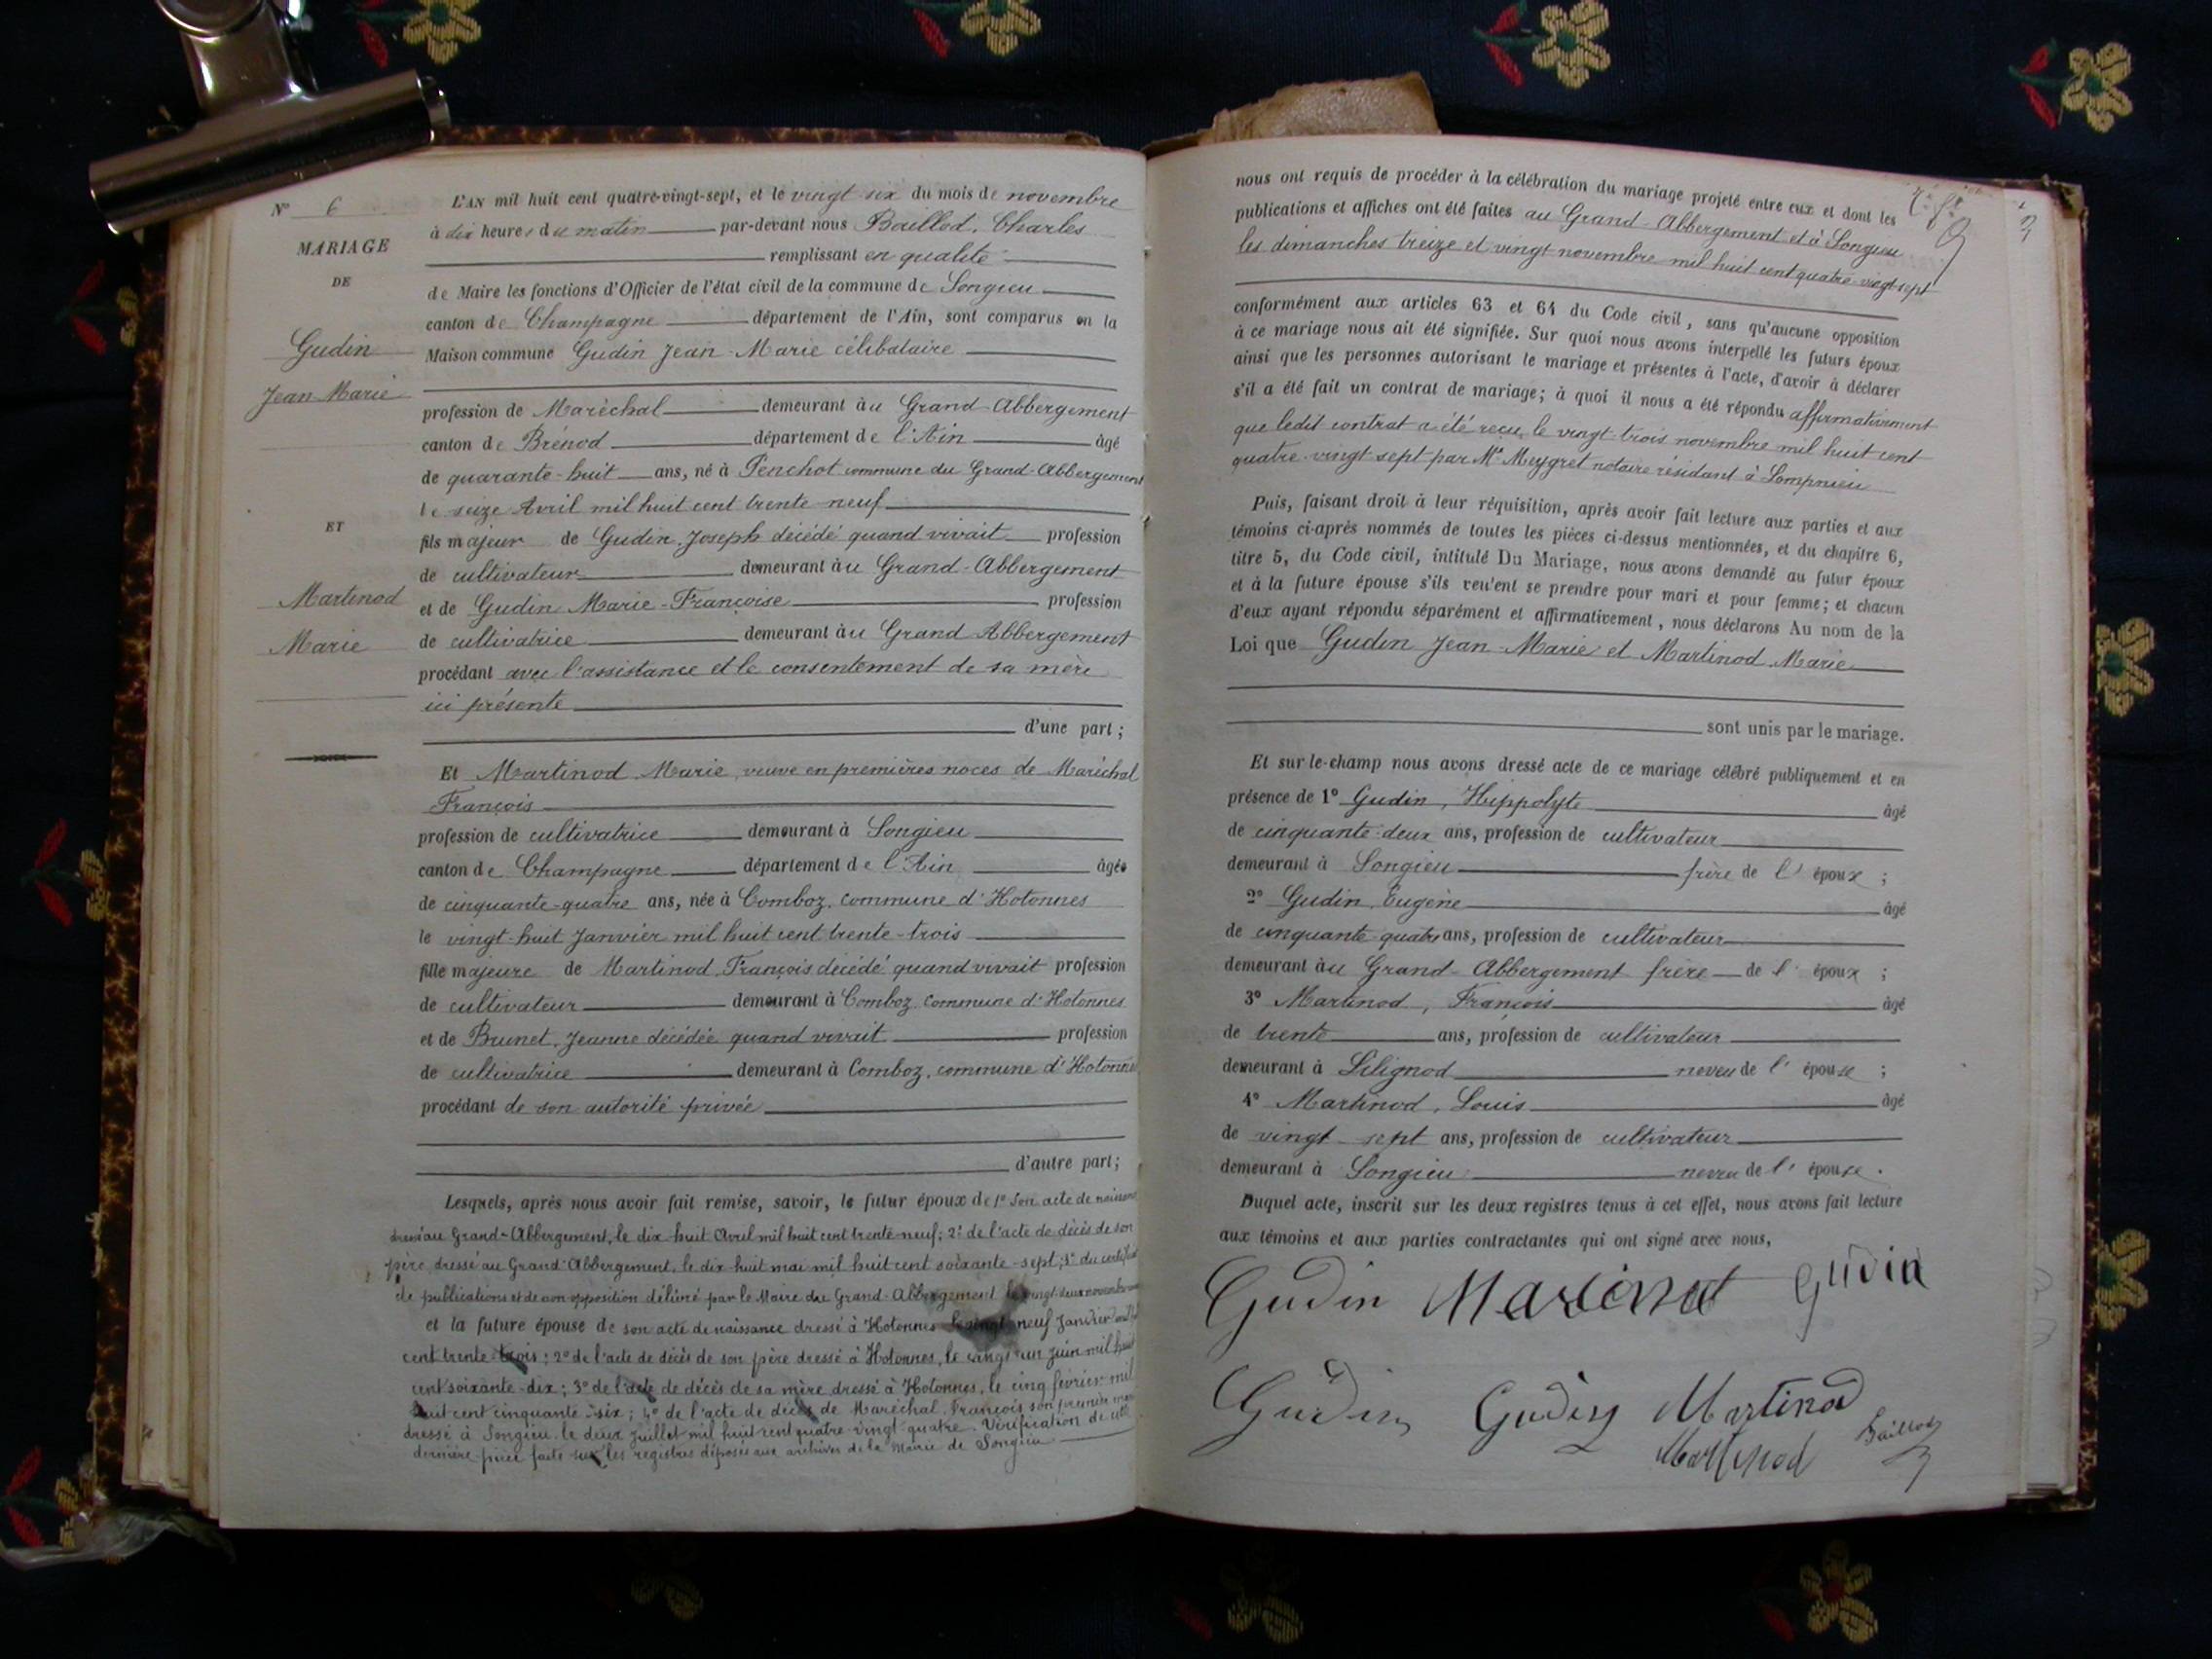 N° 6
MARIAGE
DE
Gudin
Jean-Marie
ET
Martinod
Marie
L'AN mil huit cent quatre-vingt-sept, et le vingt six du mois de novembre
à dix heures du matin par-devant nous Baillod, Charles
remplissant en qualité
de Maire les fonctions d'Officier de l'état civil de la commune de Songieu
canton de Champagne département de l'Ain, sont comparus en la
Maison commune Gudin Jean-Marie célibataire
profession de Maréchal demeurant au Grand-Abbergement
canton de Brénod département de l'Ain âgé
de quarante-huit ans, né à Penchot commune du Grand-Abbergement
le seize Avril mil huit cent trente neuf
fils majeur de Gudin Joseph décédé quand vivait profession
de cultivateur demeurant au Grand-Abbergement
et de Gudin Marie-Françoise profession
de cultivatrice demeurant au Grand Abbergement
procédant avec l'assistance et le consentement de sa mère
ici présente
d'une part;
Et Martinod Marie, veuve en premières noces de Maréchal
François
profession de cultivatrice demeurant à Songieu
canton de Champagne département de l'Ain âgée
de cinquante-quatre ans, née à Comboz, commune d'Hotonnes
le vingt-huit Janvier mil huit cent trente-trois
fille majeure de Martinod François décédé quand vivait profession
de cultivateur demeurant à Comboz, commune d'Hotonnes
et de Brunet, Jeanne décédée quand vivait profession
de cultivatrice demeurant à Comboz, commune d'Hotonnes
procédant de son autorité privée
d'autre part;
Lesquels, après nous avoir fait remise, savoir, le futur époux de 1° Son acte de naissance
dressé au Grand-Abbergement, le dix-huit Avril mil huit cent trente-neuf; 2° de l'acte de décès de son
père, dressé au Grand-Abbergement, le dix-huit mai mil huit cent soixante-sept; 3° du certificat
de publications et de non opposition délivré par le Maire du Grand-Abbergement le vingt-deux novembre
et la future épouse de son acte de naissance dressé à Hotonnes le vingt neuf Janvier mil huit
cent trente-trois; 2° de l'acte de décès de son père dressé à Hotonnes, le vingt-un juin mil huit
cent soixante-dix; 3° de l'acte de décès de sa mère dressé à Hotonnes, le cinq février mil
huit cent cinquante-six; 4° de l'acte de décès de Maréchal François son premier mari
dressé à Songieu le deux Juillet mil huit cent quatre-vingt-quatre. Vérification de cette
dernière pièce faite sur les registres déposés aux archives de la Mairie de Songieu
nous ont requis de procéder à la célébration du mariage projeté entre eux et dont les
publications et affiches ont été faites au Grand-Abbergement et à Songieu
les dimanches treize et vingt novembre mil huit cent quatre-vingt-sept
conformément aux articles 63 et 64 du Code civil, sans qu'aucune opposition
à ce mariage nous ait été signifiée. Sur quoi nous avons interpellé les futurs époux
ainsi que les personnes autorisant le mariage et présentes à l'acte, d'avoir à déclarer
s'il a été fait un contrat de mariage; à quoi il nous a été répondu affirmativement
que ledit contrat a été reçu, le vingt-trois novembre mil huit cent
quatre-vingt sept par Me Meygret notaire résidant à Lompnieu
Puis, faisant droit à leur réquisition, après avoir fait lecture aux parties et aux
témoins ci-après nommés de toutes les pièces ci-dessus mentionnées, et du chapitre 6,
titre 5, du Code civil, intitulé Du Mariage, nous avons demandé au futur époux
et à la future épouse s'ils veu'ent se prendre pour mari et pour femme; et chacun
d'eux ayant répondu séparément et affirmativement, nous déclarons Au nom de la
Loi que Gudin Jean-Marie et Martinod Marie
sont unis par le mariage.
Et sur-le-champ nous avons dressé acte de ce mariage célébré publiquement et en
présence de 1° Gudin, Hippolyte âgé
de cinquante-deux ans, profession de cultivateur
demeurant à Songieu frère de l'époux;
2° Gudin, Eugène âgé
de cinquante-quatre ans, profession de cultivateur
demeurant au Grand-Abbergement frère de l'époux;
3° Martinod, François âgé
de trente ans, profession de cultivateur
demeurant à Lilignod neveu de l'épouse;
4° Martinod, Louis âgé
de vingt-sept ans, profession de cultivateur
demeurant à Songieu neveu de l'épouse.
Duquel acte, inscrit sur les deux registres tenus à cet effet, nous avons fait lecture
aux témoins et aux parties contractantes qui ont signé avec nous,
Gudin Martinod Gudin
Gudin Gudin Martinod
Martinod Baillod